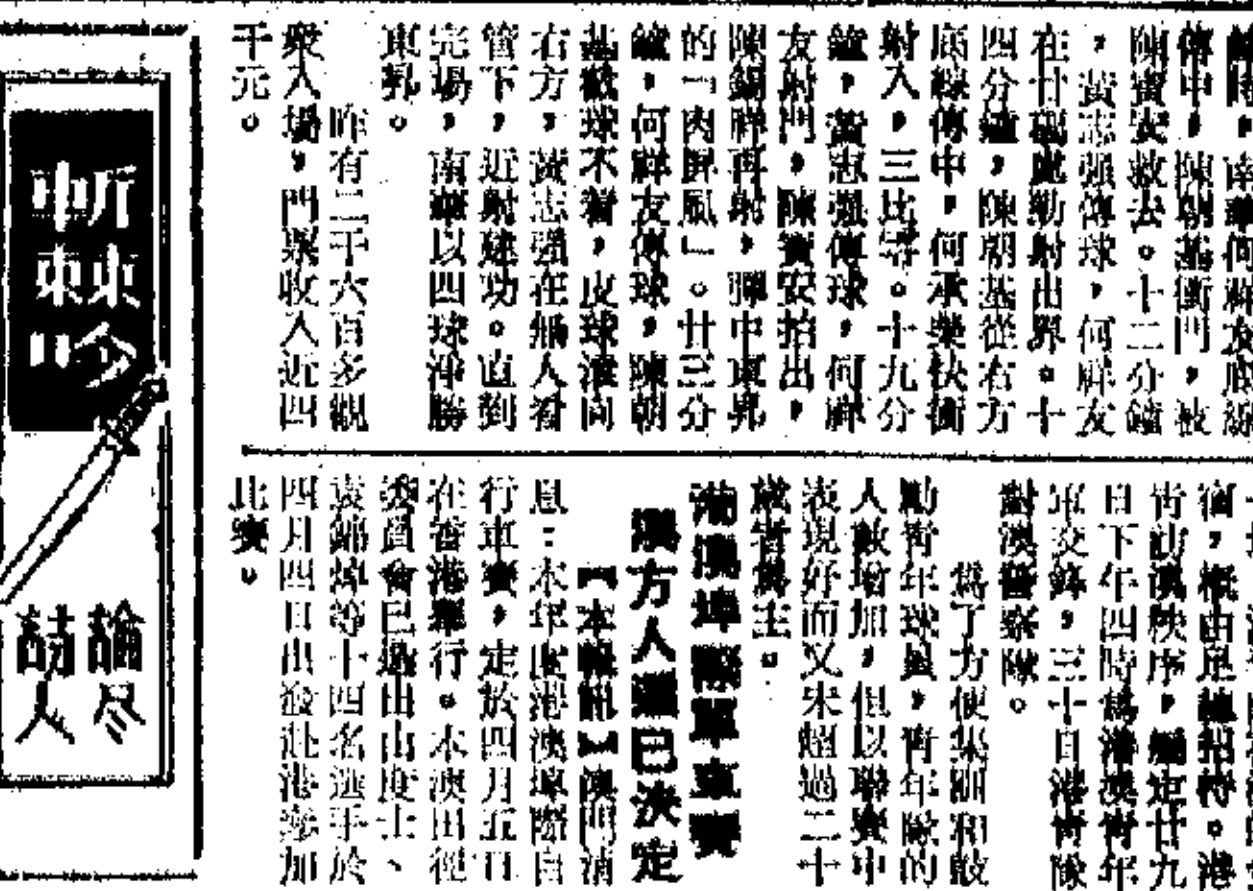 傳中，陳朝基衝門，被
陳寶安救去。十二分鐘
，黃志强傳球，何祥友
在廿碼處勁射出界。十
四分鐘，陳朝基從右方
底線傳中，何承榮快衝
射入，三比零。十九分
鐘，黃志强傳球，何祥
友射門，陳寶安拍出，
陳錫祥再射，彈中東昇
的「肉屏風」。廿三分
鐘，何祥友傳球，陳朝
基截球不着，皮球滾向
右方，黃志强在無人看
管下，近射建功。直到
完塲，南華以四球淨勝
東昇。
昨有二千六百多觀
衆入塲，門票收入近四
千元。
宿，概由足總招待。港
靑訪澳秩序，編定廿九
日下午四時爲港澳靑年
軍交鋒，三十日港靑隊
對澳警察隊。
爲了方便集訓和鼓
勵靑年球員，靑年隊的
人數增加，但以聯賽中
表現好而又未超過二十
歲者爲主。
港澳埠際單車賽
澳方人選已决定
【本報訊】澳門消
息：本年度港澳埠際自
行車賽，定於四月五日
在香港舉行。本澳田徑
委員會已選出由度士、
袁錦焯等十四名選手於
四月四日出發赴港參加
此賽。
論尽
詰人